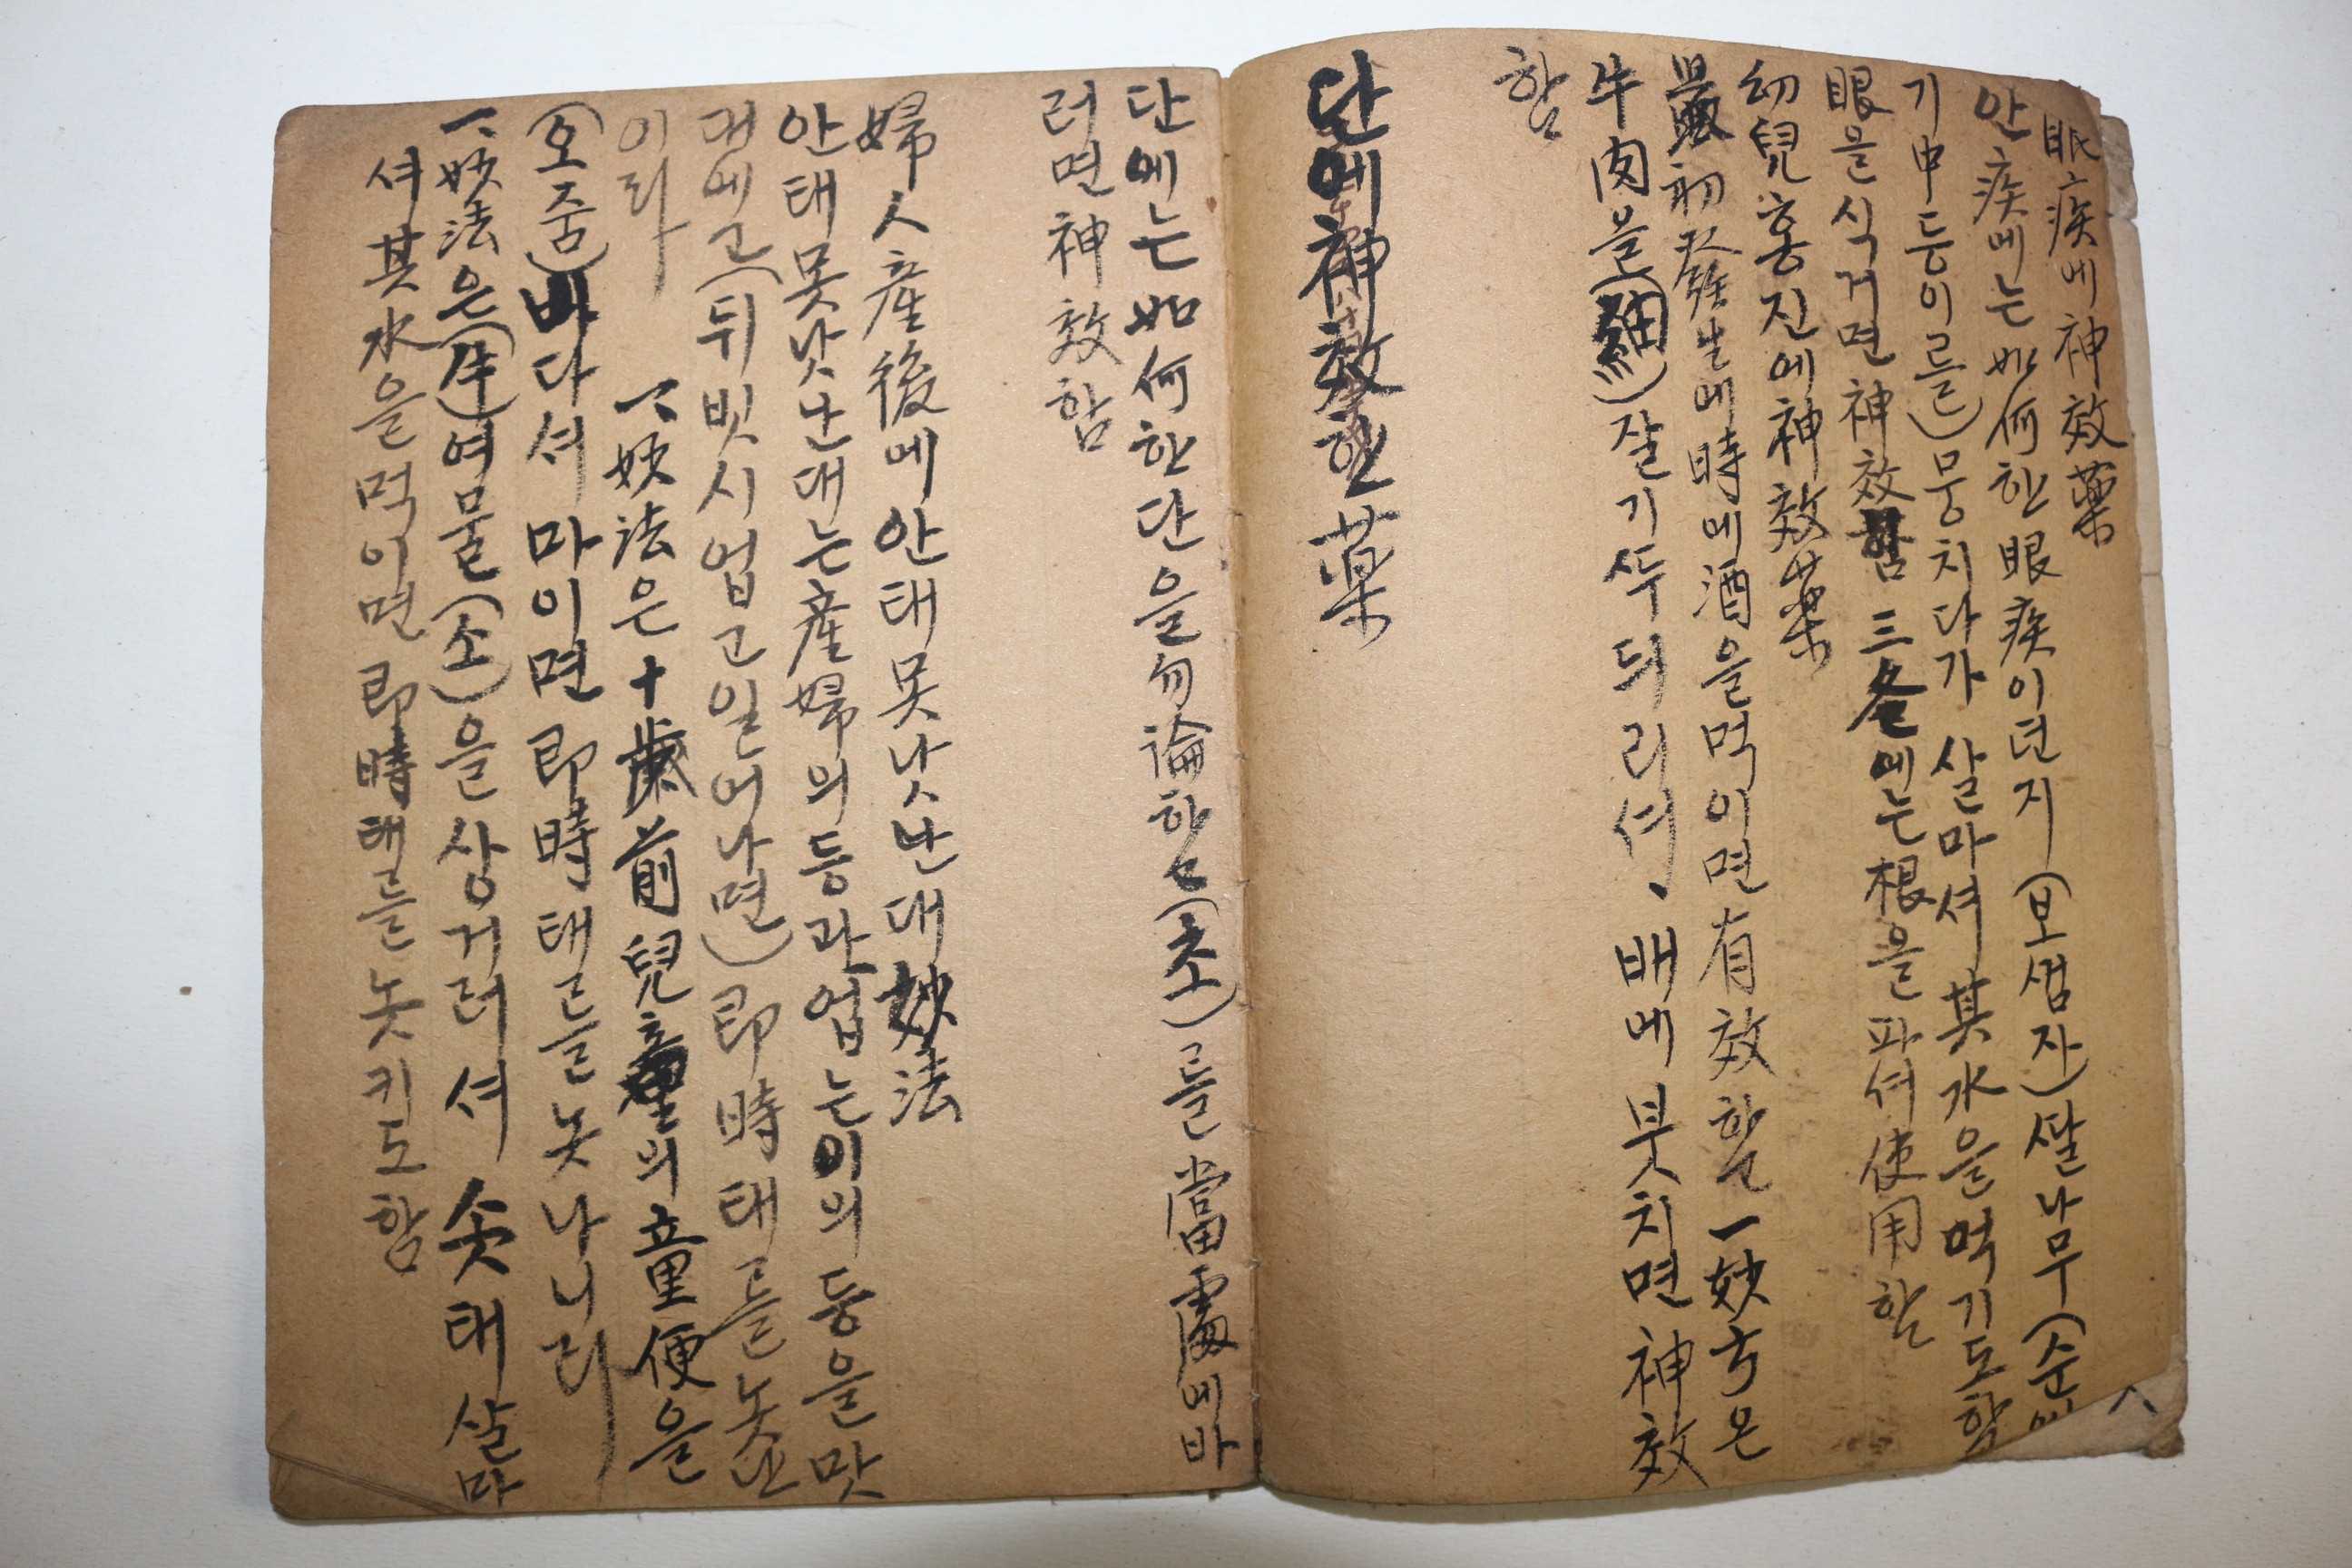 眼疾에神效藥
안疾에는如何한眼疾이던지(보셤자)쌀나무(순
기申등이를)뭉치다가살마셔其水을먹기도함
眼을식거면神效함三冬에는根을파셔使用할
幼兒홍진에神效薬
最初發生에時에酒을먹이면有效할一妙方은
牛肉을(細)잘기쑤듸리셔、배에붓치면神效
함
단에神效한薬
단에는如何한단을勿論할(초)를當處에바
러면神效함
婦人産後에안태못낫난대妙法
안태못낫난대는産婦의등과업는이의등을맛
대에고(뒤빗시업고일어나면)即時태를놋난
이라
一、妙法은十歲前兒童의童便을
(오줌)바다셔마이면即時태를놋나니라
一、妙法은(牛)여물(소)을상거려셔솟태살마
셔其水을먹이면即時태를놋키도함